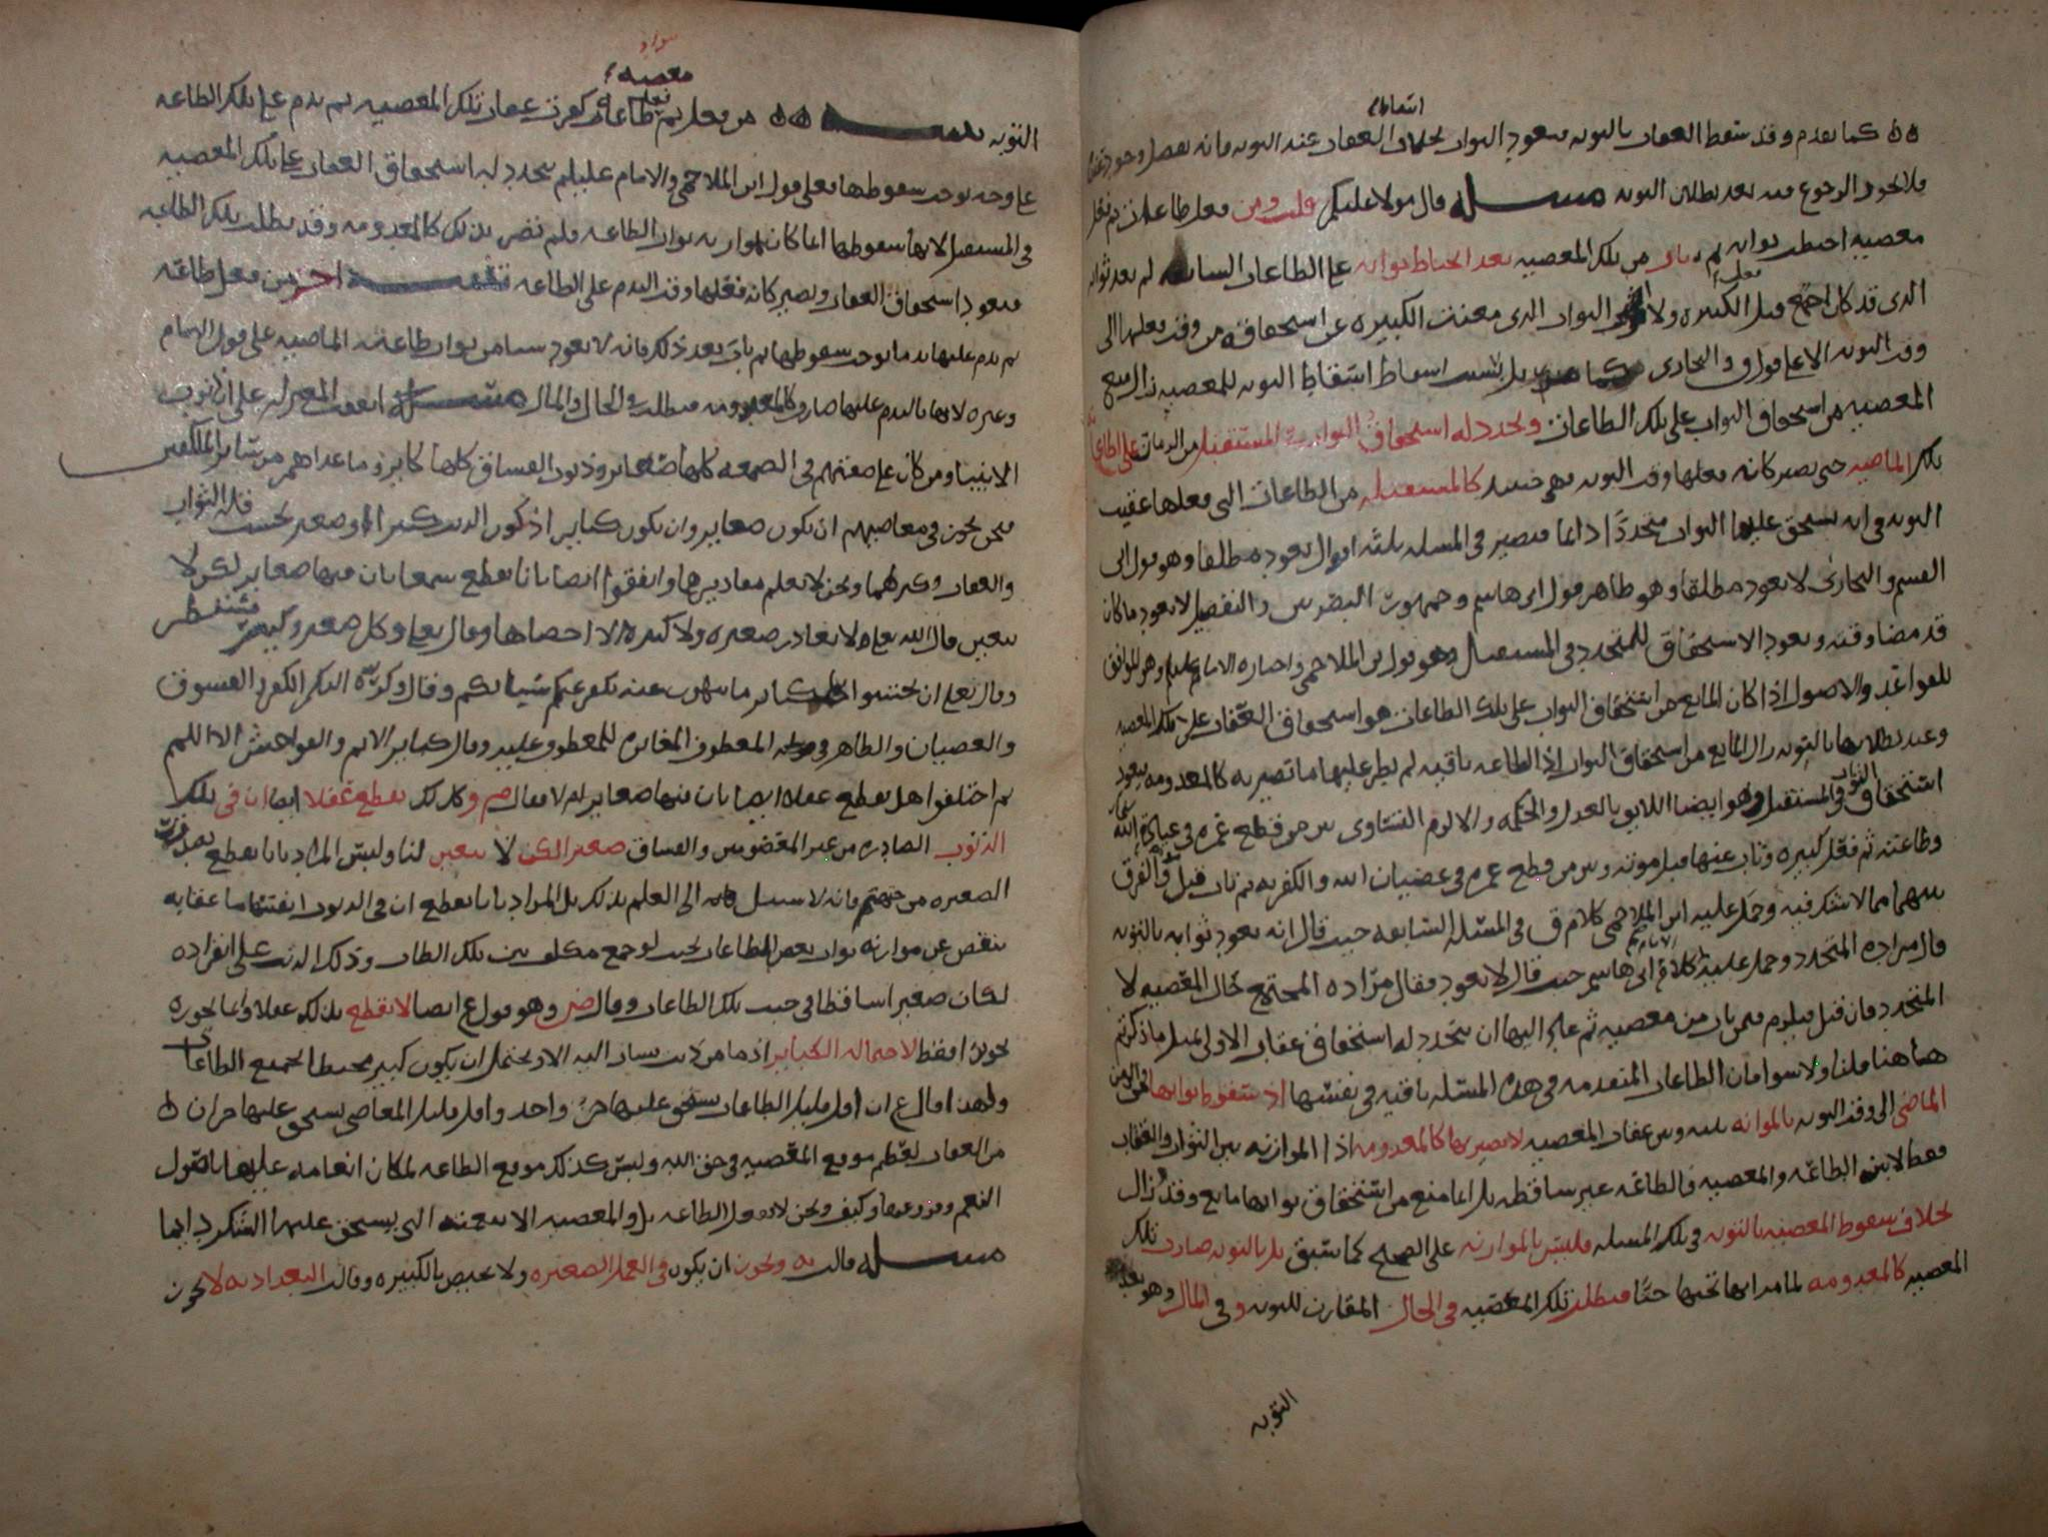 اسقاط
كما تقدم وقد سقط العقاب بالتوبة فيعود الثواب بخلاف العقاب عند التوبة فانه
فلا يجوز الرجوع فيه بعد بطلان التوبة مسئلة قال مولانا عليلم قلت ومن فعل طاعات ثم فعل
معصية احبطت ثوابه ثم تاب من تلك المعصية بعد انحباط ثوابه على الطاعات السابقة لم يعد ثوابه
الذي قد كان اجتمع قبل الكبيرة ولا الثواب الذي منعت الكبيرة عن استحقاقه من وقت فعلها الى
وقت التوبة الا على قول ق والبخاري بل اسقاط التوبة للمعصية زال منع
المعصية من استحقاق الثواب على تلك الطاعات ويجدد له استحقاق الثواب في المستقبل من الزمان على الطاعات
تلك الماضية حتى يصير كانه فعلها وقت التوبة فهي حينئذ كالمستقبلة من الطاعات التي فعلها عقيب
التوبة في انه يستحق عليها الثواب متجددا دائما فيصير في المسئلة ثلثة اقوال يعود مطلقا وهو قول ابي
القسم والبخاري لا يعود مطلقا وهو ظاهر قول ابي هاشم وجمهور البصريين والتفصيل لا يعود ما كان
قد مضا وقته ويعود الاستحقاق للمتجدد في المستقبل وهو قول ابن الملاحمي واختاره الامام عليلم وهو الموافق
للقواعد والاصول اذا كان المانع من استحقاق الثواب على تلك الطاعات هو استحقاق العقاب على تلك المعصية
وعند بطلانها بالتوبة زال المانع من استحقاق الثواب اذ الطاعة باقية لم يطر عليها ما تصير به كالمعدومة فيعود
استحقاق الثواب في المستقبل وهو ايضا اللايق بالعدل والحكمة والا لزم التساوي بين من قطع عمره في عبادة الله
وطاعته ثم فعل كبيرة وتاب عنها قبل موته وبين من قطع عمره في عصيان الله والكفر به ثم تاب قبل موته والفرق
بينهما مما لا شك فيه وحمل عليه ابن الملاحمي كلام ق في المسئلة السابقة حيث قال انه يعود ثوابه بالتوبة
قال مراده المتجدد وحمل عليه الامام كلام ابي هاشم حيث قال لا يعود فقال مراده المجتمع حال المعصية لا
المتجدد فان قيل فيلزم فيمن تاب من معصية ثم عاد اليها ان يتجدد له استحقاق عقاب الاولى بمثل ما ذكرتم
هاهنا قلنا ولا سوا فان الطاعات المتقدمة في هذه المسئلة باقية في نفسها اذ سقوط ثوابها في الزمن
الماضي الى وقت التوبة بالموازنة بينه وبين عقاب المعصية لا يصيرها كالمعدومة اذ الموازنة بين الثواب والعقاب
فقط لا بين الطاعة والمعصية فالطاعة غير ساقطة بل انما منع من استحقاق ثوابها مانع وقد زال
بخلاف سقوط المعصية بالتوبة في تلك المسئلة فليس بالموازنة على الصحيح كما سبق بل بالتوبة صارت تلك
المعصية كالمعدومة لما مر انها تجبها جبا فبطلت تلك المعصية في الحال المقارن للتوبة وفي المآل وهو بعد
التوبة
معصية
التوبة من فعل ثم طاعات كفرت عقاب تلك المعصية ثم ندم على تلك الطاعة
على وجه يوجب سقوطها فعلى قول ابن الملاحمي والامام عليلم يتجدد له استحقاق العقاب على تلك المعصية
في المستقبل لانها سقوطها انما كان بموازنة ثواب الطاعة فلم تصر بذلك كالمعدومة وقد بطلت تلك الطاعة
فيعود استحقاق العقاب ويصير كانه فعلها وقت الندم على الطاعة تنبيه اخر من فعل طاعة
ثم ندم عليها ندما يوجب سقوطها ثم تاب بعد ذلك فانه لا يعود شيئا من ثواب طاعته الماضية على قول الامام
وغيره لانها بالندم عليها صارت كالمعدومة فبطلت في الحال والمآل مسئلة اتفقت المعتزلة على ان ذنوب
الانبيا ومن كان على صفتهم في العصمة كلها صغاير وذنوب الفساق كلها كباير وما عداهم من ساير المكلفين
فنحن نجوز في معاصيهم ان تكون صغاير وان تكون كباير اذ كون الذنب كبيرا او صغيرا بحسب قلة الثواب
والعقاب وكثرتهما ونحن لا نعلم مقاديرها واتفقوا ايضا بانا نقطع سمعا بان فيها صغاير لكن لا
تتعين قال الله تعالى لا يغادر صغيرة ولا كبيرة الا احصاها وقال تعالى وكل صغير وكبير مستطر
وقال تعالى ان تجتنبوا كباير ما تنهون عنه نكفر عنكم سيئاتكم وقال وكره اليكم الكفر والفسوق
والعصيان والظاهر في المعطوف المغايرة للمعطوف عليه وقال كباير الاثم والفواحش الا اللمم
ثم اختلفوا هل نقطع عقلا ايضا بان فيها صغاير ام لا فقال ض وكذلك نقطع عقلا ايضا ان في تلك
الذنوب الصادرة من غير المعصومين والفساق صغيرا لكن لا تتعين لنا وليس المراد بانا نقطع
الصغيرة من جهتهم فانه لا سبيل الى العلم بذلك بل المراد بانا نقطع ان في الذنوب ما عقابه
ينقص عن موازنة ثواب بعض الطاعات بحيث لو جمع مكلف بين تلك الطاعات وذلك الذنب على انفراده
لكان صغيرا ساقطا في جنب تلك الطاعات وقال ض وهو قول ع ايضا لا نقطع بذلك عقلا وانما نجوزه
تجويزا فقط لاحتمال الكباير اذ ما من ذنب يشار اليه الا ويحتمل ان يكون كبير محبطا لجميع الطاعات
ولهذا قال ع ان اقل قليل الطاعات يستحق عليها جزء واحد واقل قليل المعاصي يستحق عليها جزان
من العقاب لعظم موقع المعصية في حق الله وليس كذلك موقع الطاعة لمكان انعامه عليها باصول
النعم وفروعها وكيف ونحن لا نفعل الطاعة بل والمعصية الا بنعمته التي يستحق عليها الشكر دايما
مسئلة قالت يه ويجوز ان يكون في العمد الصغيرة ولا يختص بالكبيرة وقالت البغدادية لا يجوز